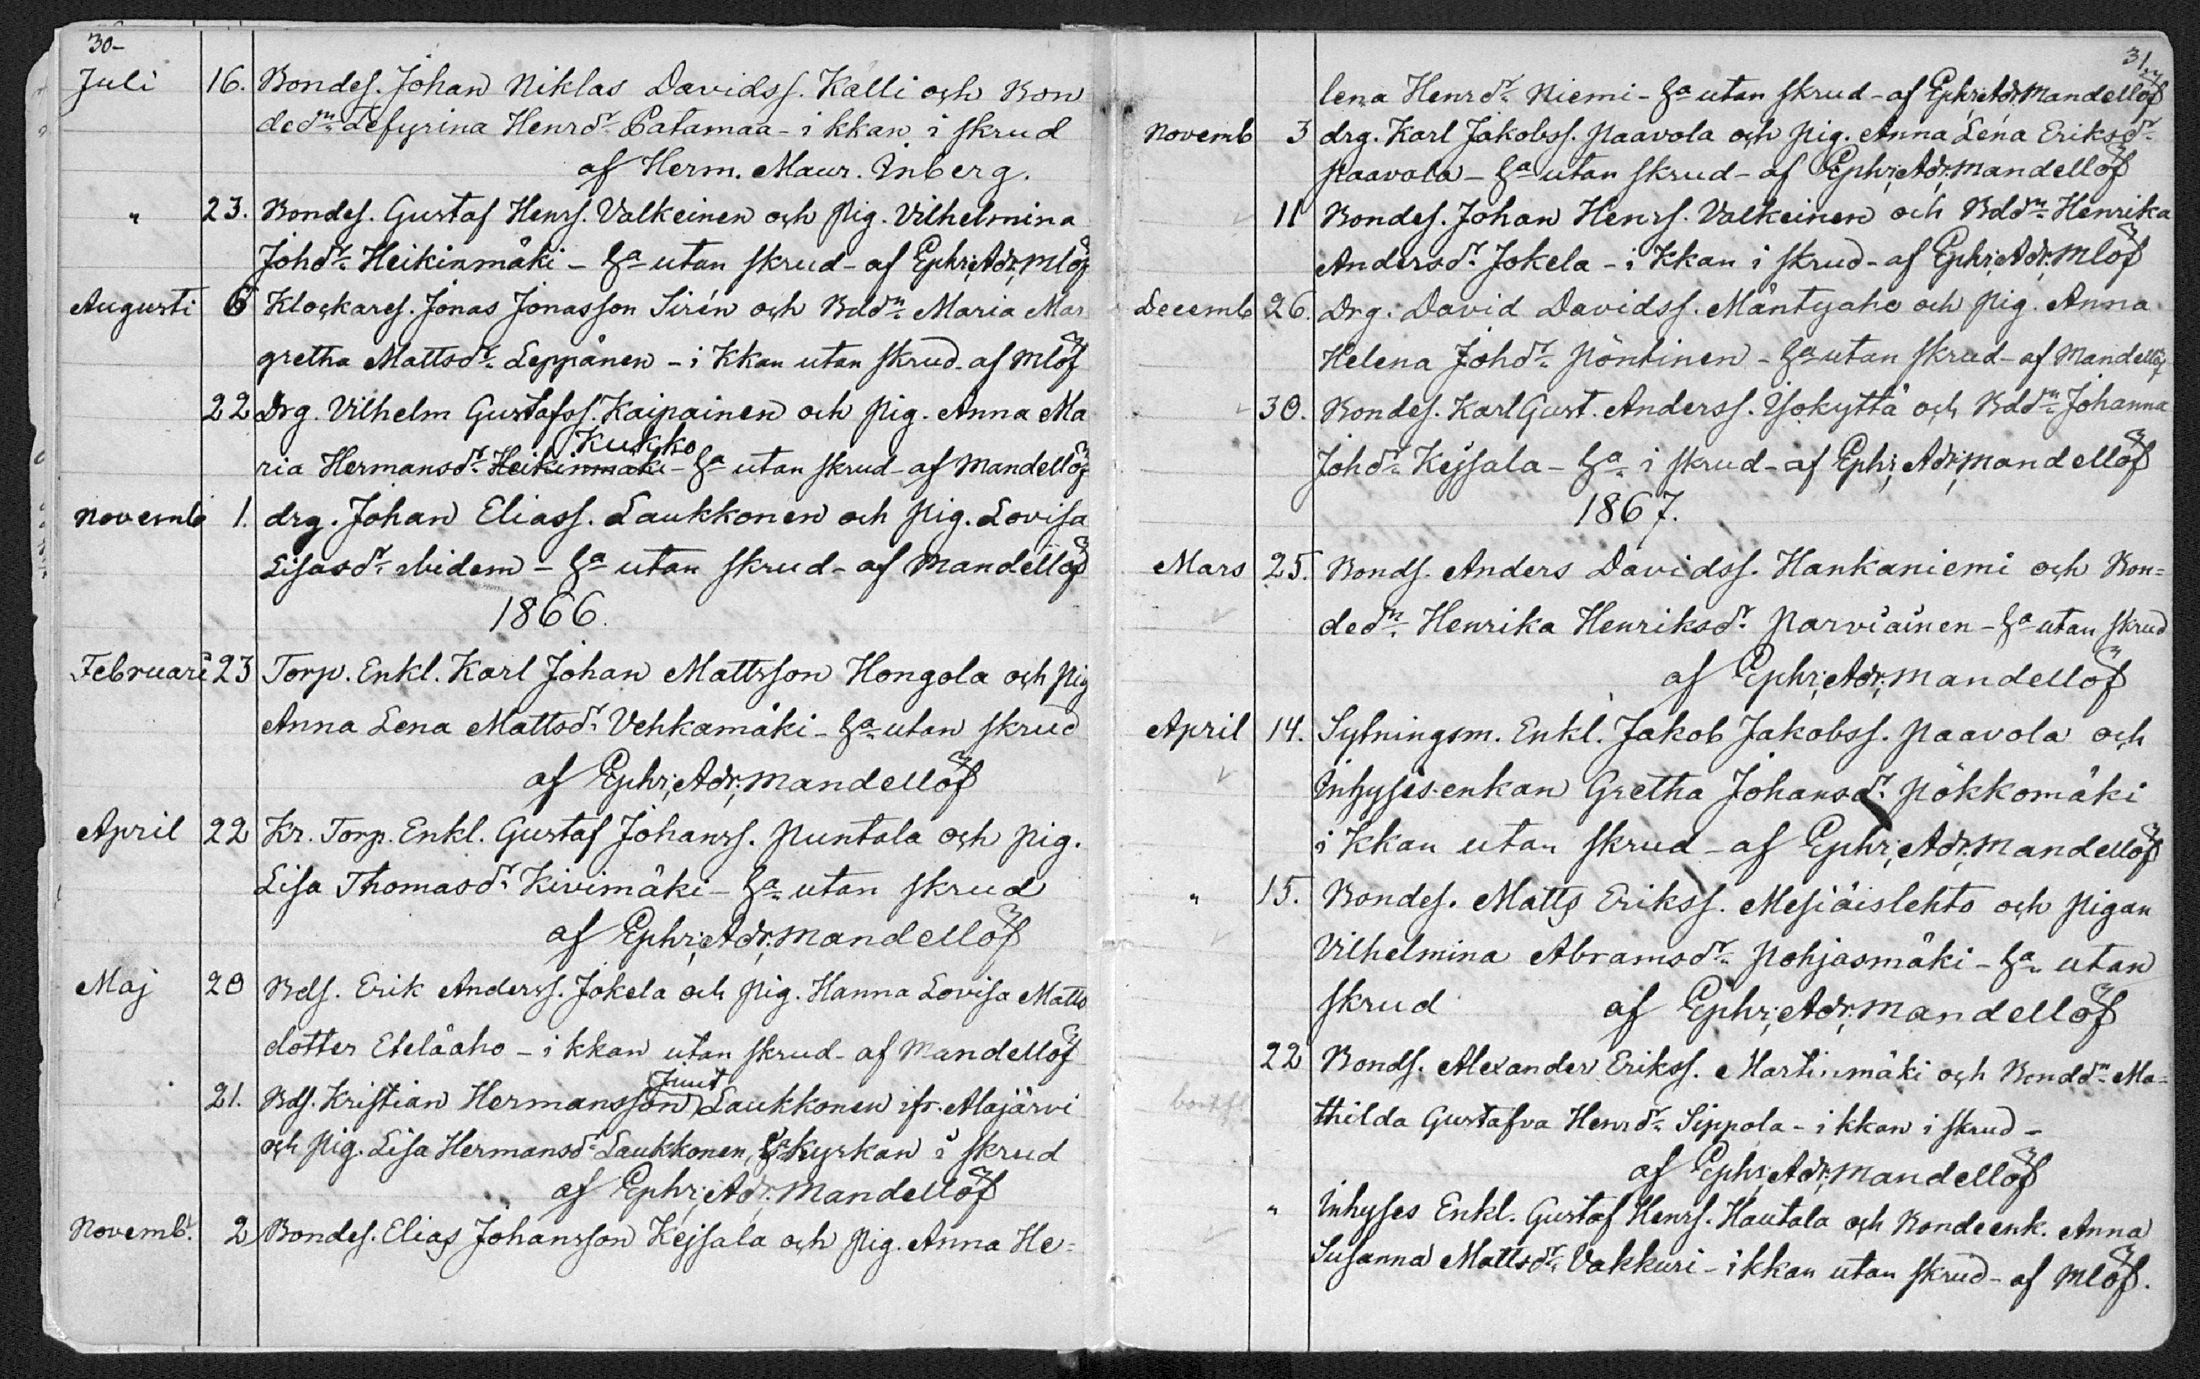 30-
Juli 16. Bondes. Johan Niklas Davidss. Kalli och Bon
dedr. Sefyrina Henrdr. Patamaa - i kkan i skrud
af Herm. Maur. Inberg.
" 23. Bondes. Gustaf Henrs. Valkeinen och pig. Vilhelmina
Johdr. Heikinmäki - ha utan skrud - af Ephr; Adr; Mlöf
Augusti 6 Klockares. Jonas Jonasson Sirén och Bddr. Maria Mar
gretha Mattsdr. Leppänen - i kkan utan skrud - af Mlöf
22 Drg. Vilhelm Gustafss. Kaipainen och pig. Anna Ma
Kukko
ria Hermansdr. Heikinmäki - ha utan skrud - af Mandellöf
Novemb 1. drg. Johan Eliass. Laukkonen och pig. Lovisa
Lisasdr. ibidem - ha utan skrud - af Mandellöf
1866.
Februari 23 Torp. Enkl. Karl Johan Mattsson Hongola och pig
Anna Lena Mattsdr. Vehkamäki - ha utan skrud
af Ephr; Adr; Mandellöf
April 22 Kr. Torp. Enkl. Gustaf Johanss. Puntala och pig.
Lisa Thomasdr. Kivimäki - ha utan skrud
af Ephr; Adr; Mandellöf
Maj 20 Bds. Erik Anderss. Jokela och pig. Hanna Lovisa Matts
dotter Eteläaho - i kkan utan skrud - af Mandellöf
Juut
21. Bds. Kristian Hermansson Laukkonen ifr. Alajärvi
och pig. Lisa Hermansdr. Laukkonen, i kyrkan i skrud
af Ephr; Adr; Mandellöf
Novembr. 2 Bondes. Elias Johansson Kejsala och pig. Anna He=
31.
lena Henrdr. Niemi - ha utan skrud - af Ephr; Adr; Mandellöf
Novemb 3 drg. Karl Jakobss. Paavola och pig. Anna Lena Eriksdr.
Paavola - ha utan skrud - af Ephr; Adr; Mandellöf
11 Bondes. Johan Henrs. Valkeinen och Bddr. Henrika
Andersdr. Jokela - i kkan i skrud - af Ephr; Adr; Mlöf
Decemb 26. Drg. David Davidss. Mäntyaho och pig. Anna
Helena Johdr. Pöntinen - ha utan skrud - af Mandellöf
30. Bondes. Karl Gust. Anderss. Isokyttä och Bddr. Johanna
Johdr. Kejsala - ha i skrud - af Ephr; Adr; Mandellöf
1867.
Mars 25. Bonds. Anders Davidss. Hankaniemi och Bon=
dedr. Henrika Henriksdr. Parviainen - ha utan skrud
af Ephr; Adr; Mandellöf
April 14. Sytningsm. Enkl. Jakob Jakobss. Paavola och
Inhyses-enkan Gretha Johansdr. Pökkomäki
i kkan utan skrud - af Ephr; Adr; Mandellöf
" 15. Bondes. Matts Erikss. Mesiäislehto och pigan
Vilhelmina Abramsdr. Pohjasmäki - ha utan
skrud af Ephr; Adr; Mandellöf
22 Bonds. Alexander Erikss. Martinmäki och Bonddr. Ma=
thilda Gustafva Henrdr. Sippola - i kkan i skrud -
af Ephr; Adr; Mandellöf
" Inhyses Enkl. Gustaf Henrs. Hautala och Bondeenk. Anna
Susanna Mattsdr. Vakkuri - i kkan utan skrud - af Mlöf.